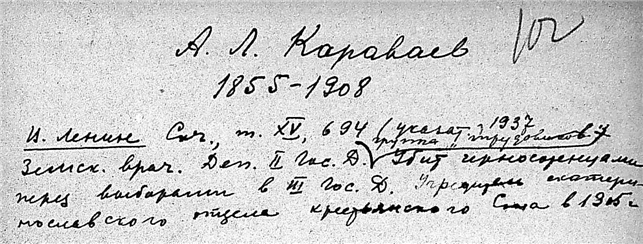 102
А. Л. Караваев
1855-1908
И. Ленине Соч., т. XV, 694 (указат. 1937
группа "трудовиков")
Земск. врач. Деп. II Гос. Д. Убит черносотенцами
перед выборами в III Гос. Д. Учредитель екатери-
нославского отдела крестьянского Союза в 1905 г